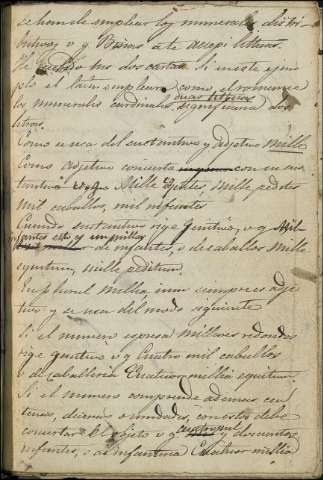 se han de emplear los numerales distri-
butivos v g Binas a te accepi litteras.
He recibido tus dos cartas. Si en este ejem-
plo el latin empleara como el romance
duas litteras
los numerales cardinales significaria dos
letras.
Como se usa del sustantivo y adjetivo Mille
Como adjetivo concierta con su sus-
tantivo v g Mille equites, mille pedites
mil caballos, mil infantes
Cuando sustantivo rige genitivo, v g Mil
de infantes, o de caballos Mille
equitum, mille peditum.
En plural millia, ium siempre es
y se usa del modo siguiente
Si el numero espresa millares redondos
rige genitivo v g Cuatro mil caballos
o de caballeria Cuatuor millia equitum.
Si el numero comprende ademas cen-
tenas, decenas o unidades, con estos debe
cuatro mil
concertar el objeto v g y doscientos
infantes, o de infanteria Cuatuor millia